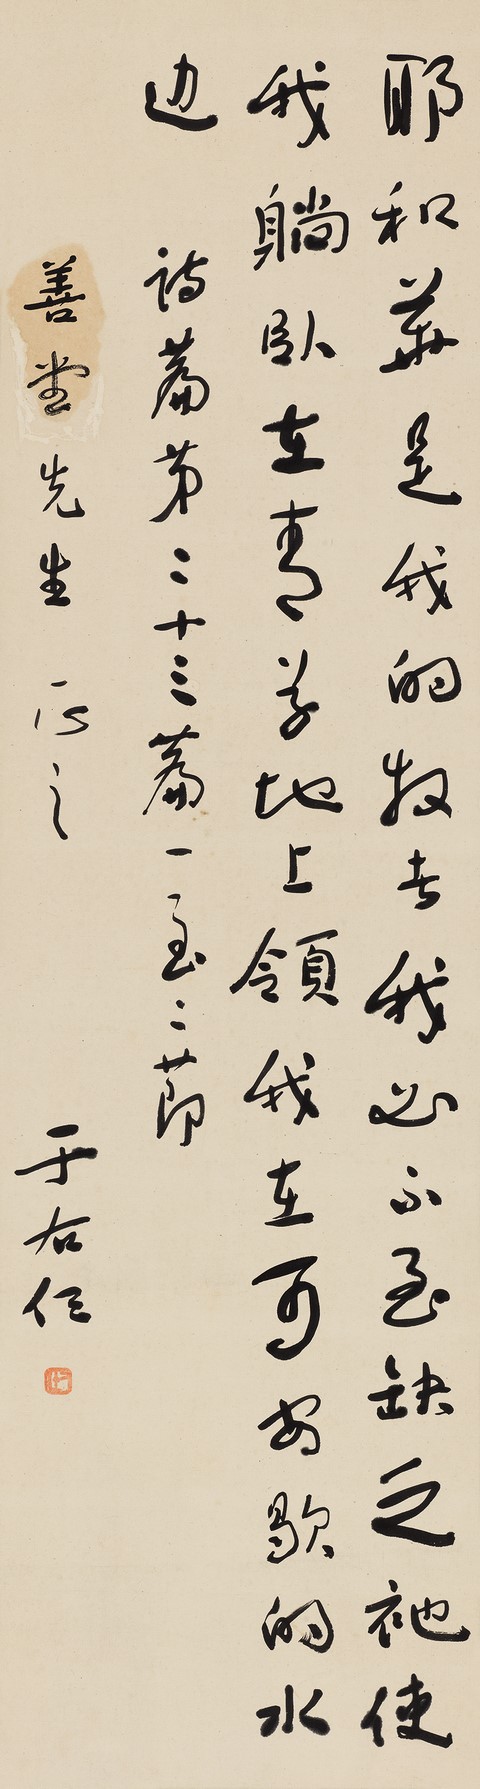 耶和華是我的牧者我必不至缺乏祂使
我躺臥在青草地上領我在可安歇的水
边 詩篇第二十三篇一至二節
善堂先生 正之
于右任